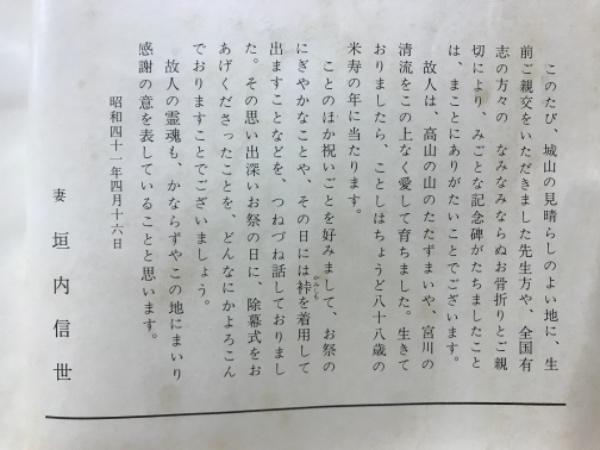 このたび、城山の見晴らしのよい地に、生
前ご親交をいただきました先生方や、全国有
志の方々の なみなみならぬお骨折りとご親
切により、みごとな記念碑がたちましたこと
は、まことにありがたいことでございます。
故人は、高山の山のたたずまいや、宮川の
清流をこの上なく愛して育ちました。生きて
おりましたら、ことしはちょうど八十八歳の
米寿の年に当たります。
ことのほか祝いごとを好みまして、お祭の
にぎやかなことや、その日には裃を着用して
かみしも
出ますことなどを、つねづね話しておりまし
た。その思い出深いお祭の日に、除幕式をお
あげくださったことを、どんなにかよろこん
でおりますことでございましょう。
故人の霊魂も、かならずやこの地にまいり
感謝の意を表していることと思います。
昭和四十一年四月十六日
妻 垣内信世